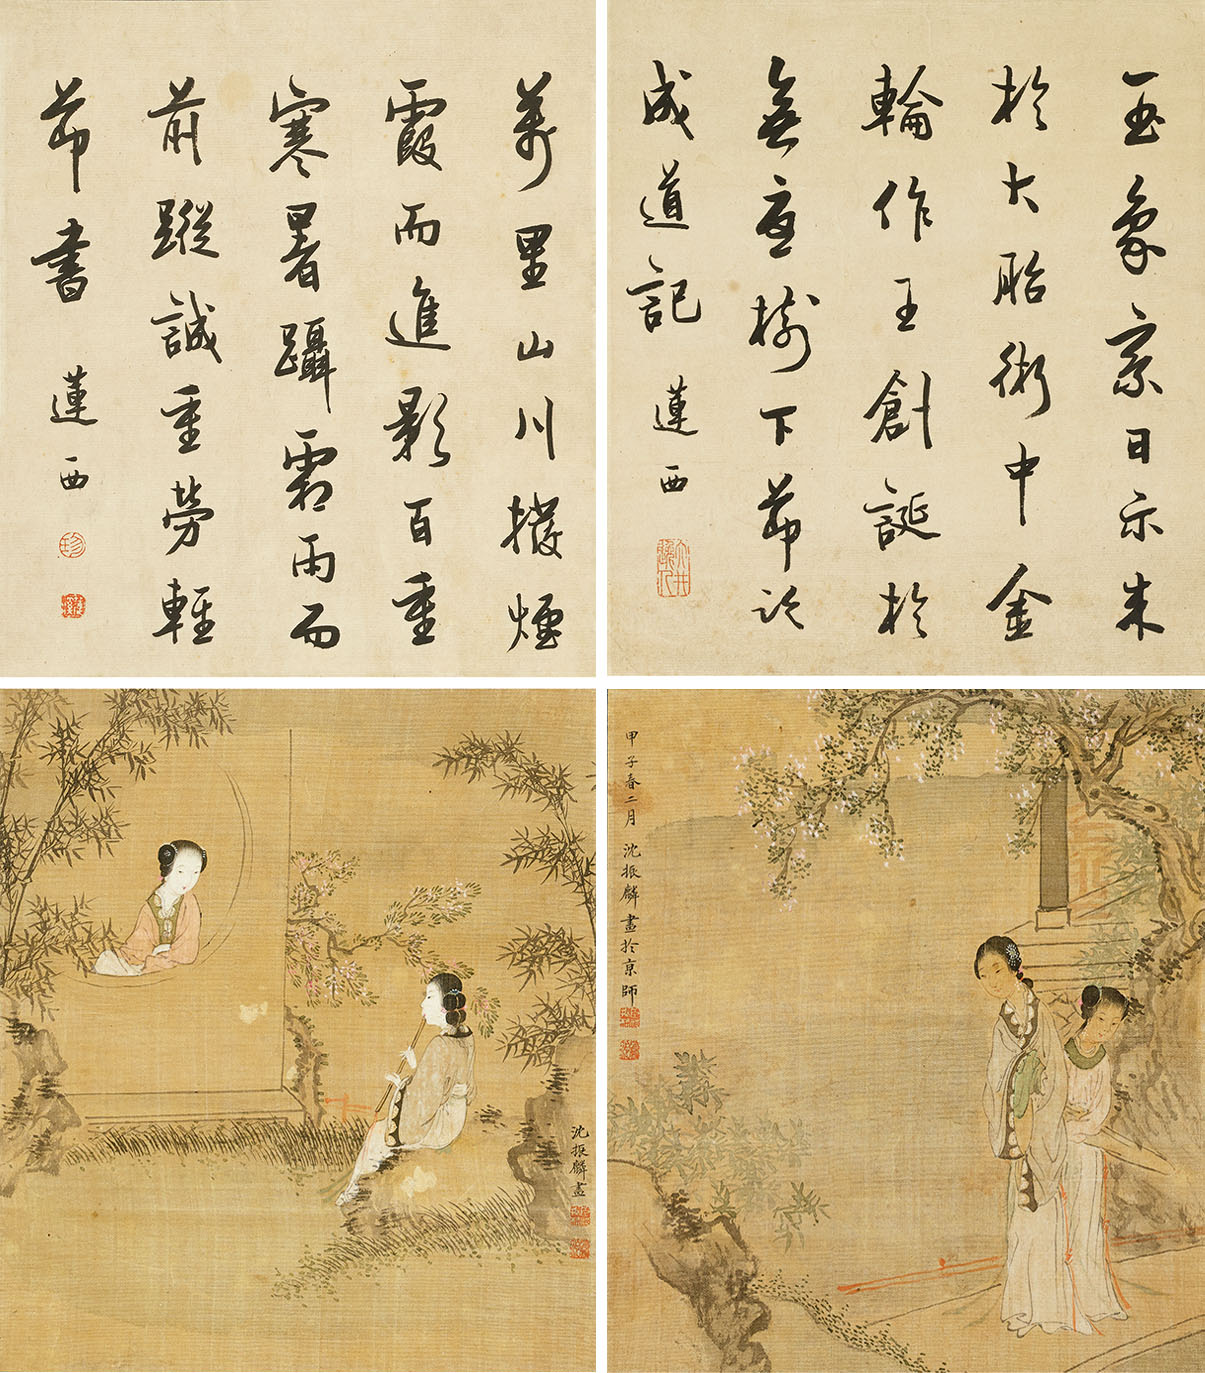 玉象乘日示來
於大胎術中金
輪作王創誕於
無憂樹下節臨
成道記 蓮西
萬里山川撥煙
霞而進影百重
寒暑躡霜雨而
前蹤誠重勞輕
節書 蓮西
甲子春二月沈振麟畫於京師
沈振麟畫